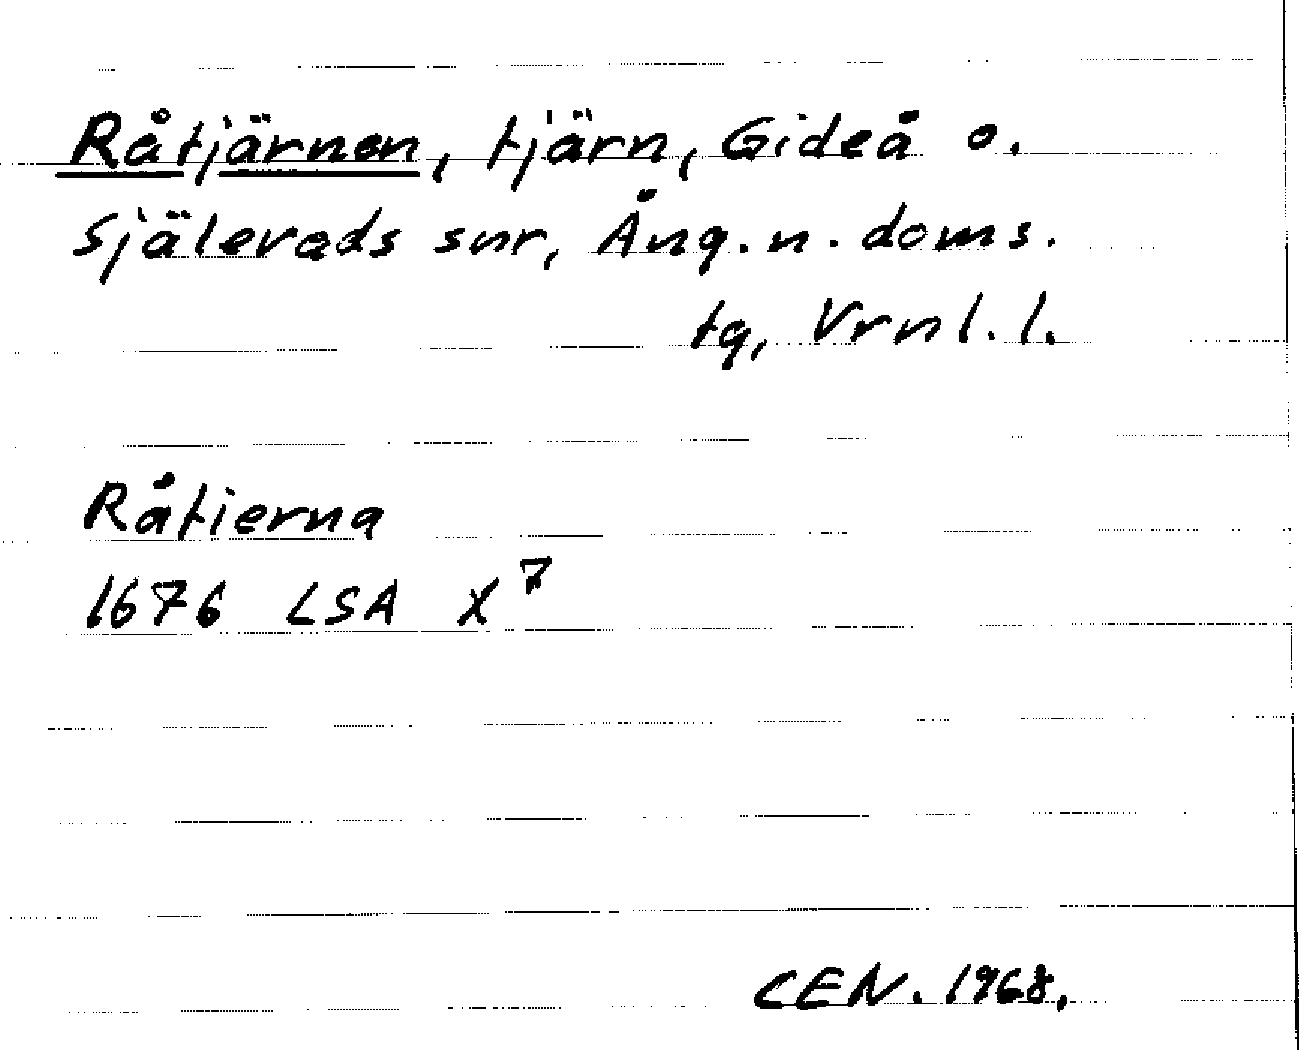 Råtjärnen, tjärn, Gideå o.
Själevads snr, Ång. n. doms.
tg, Vrnl. l.
Råtierna
1676 LSA X 7
CEN. 1968.